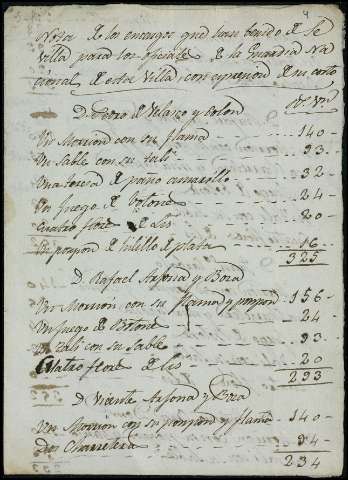 Nota de los encargos que han benido de Se
villa para los oficiales de la Guardia Na
cional de esta Villa, con expresion de su costo
Rs. Vn
D. Pedro de Velazco y Colon
Un Morrion con su flama 140
Un Sable con su tali 93
Una tercia de paño amarillo 32
Un juego de Botones 24
Cuatro flores de Lis 20
Un ponpon de hilillo de plata 16
325
D. Rafael Arjona y Boza
Un Morrion con su flama y ponpon 156
Un juego de Botones 24
Un tali con su sable 93
Cuatro flores de lis 20
293
D. Vicente Arjona y Boza
Un Morrion con su ponpon y flama 140
Dos Charreteras 94
234